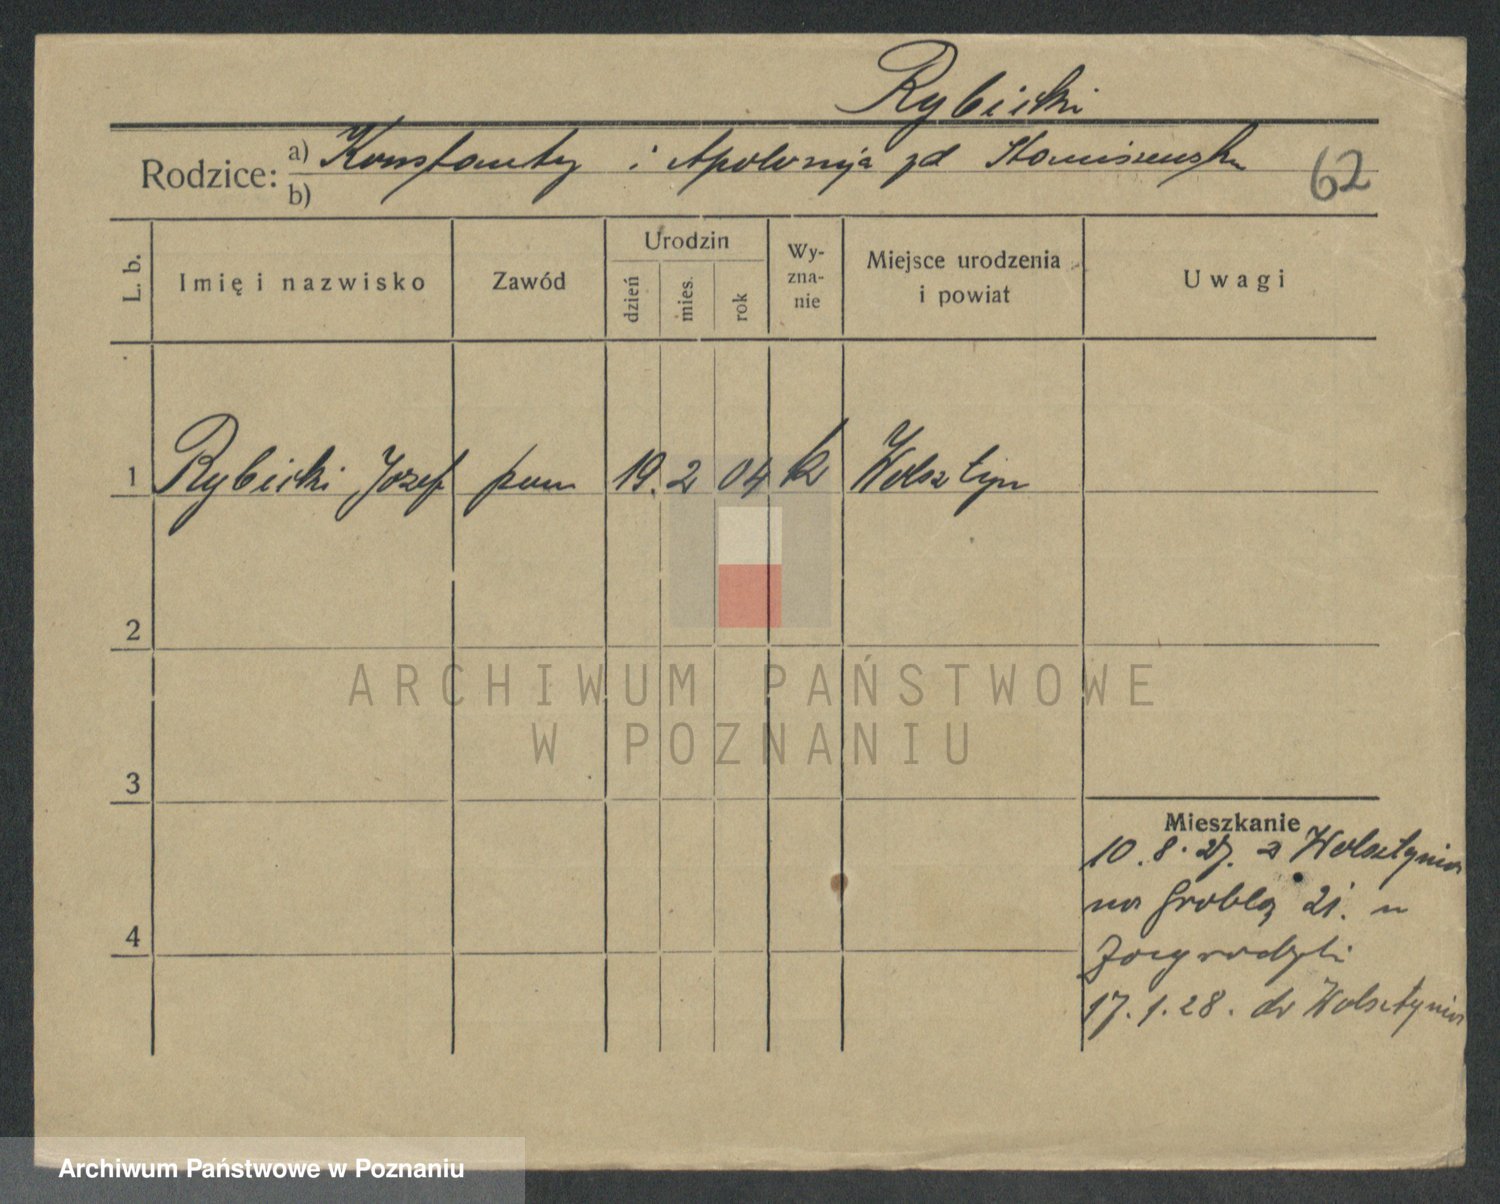 Rybicki
Rodzice: a) Konstanty i Apolonja zd
b)
62
L. b.
Imię i nazwisko
Zawód
Urodzin
dzień
mies.
rok
Wy-
zna-
nie
Miejsce urodzenia
i powiat
Uwagi
1 Rybicki Józef pom 19. 2 04 k Wolsztyn
2
ARCHIWUM PAŃSTWOWE
W POZNANIU
3
Mieszkanie
10. 8. 27. z Wolsztyna
na Groblą 21. u
4
17. 1. 28. do Wolsztyna
Archiwum Państwowe w Poznaniu